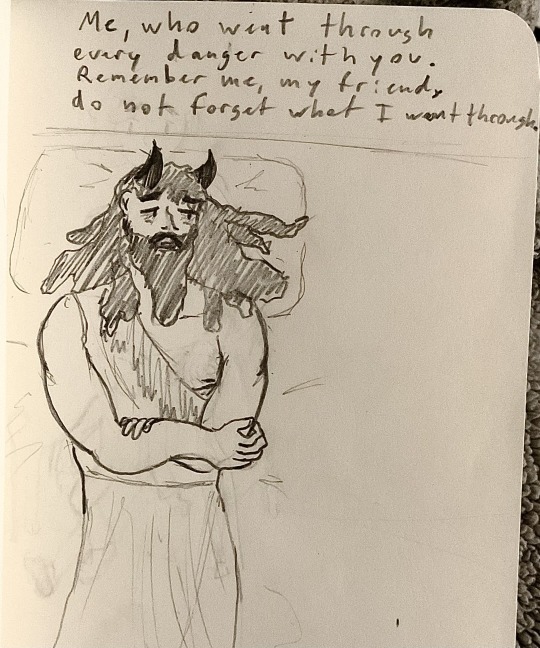 Me, who went through
every danger with you.
Remember me, my friend,
do not forget what I went through.